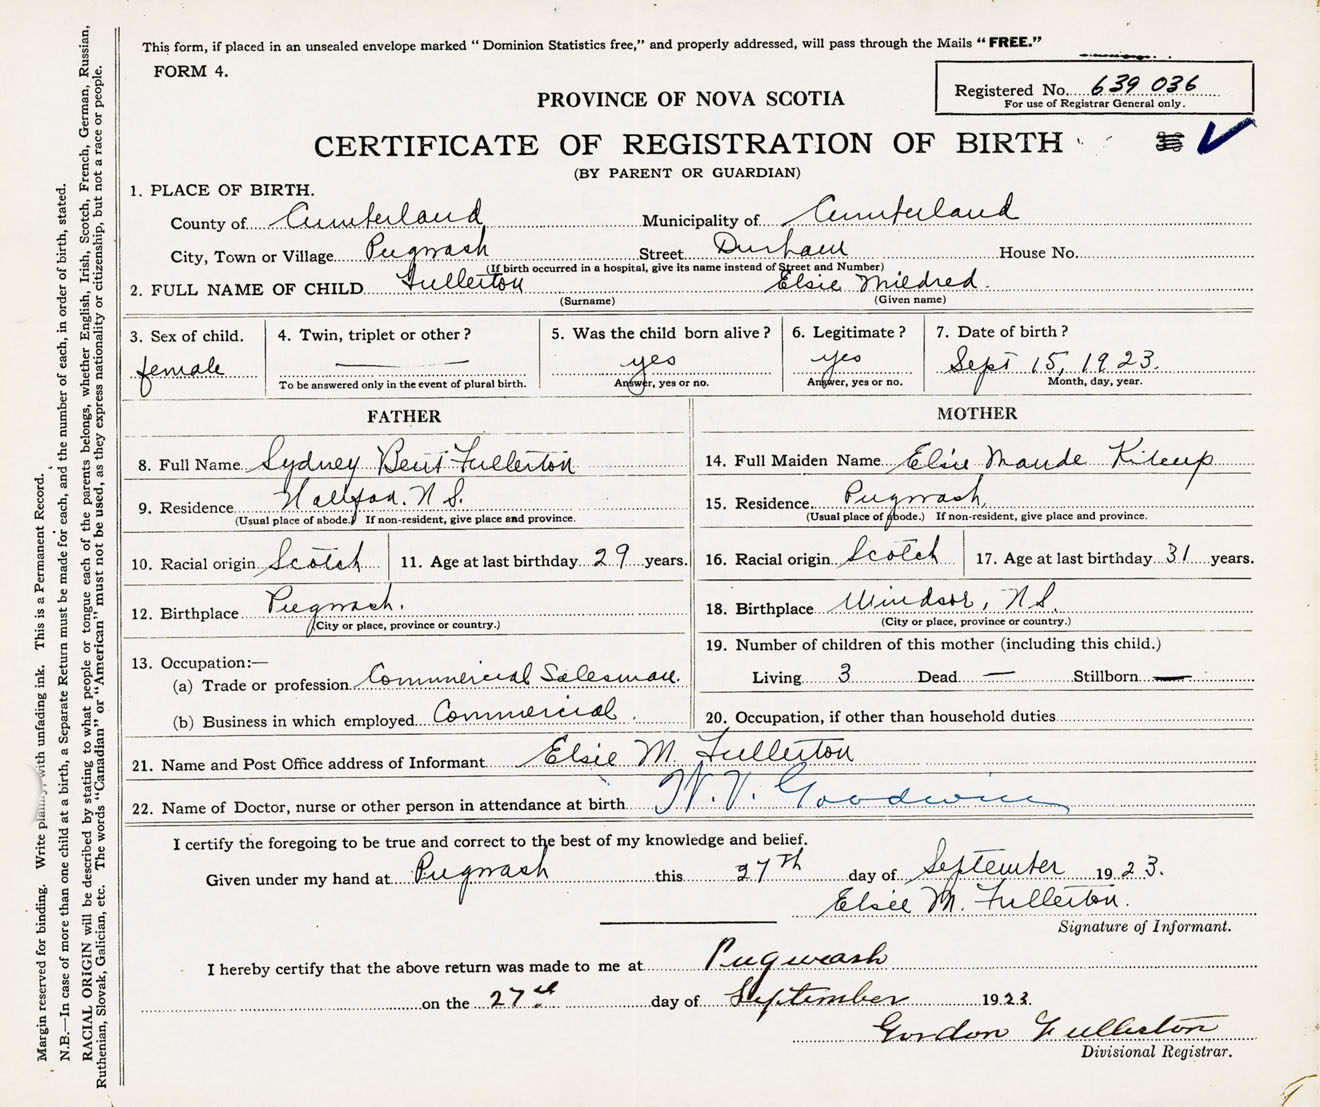 This form, if placed in an unsealed envelope marked “ Dominion Statistics free,” and properly addressed, will pass through the Mails “ FREE.”
FORM 4.
Registered No. 639 036
For use of Registrar General only.
PROVINCE OF NOVA SCOTIA
CERTIFICATE OF REGISTRATION OF BIRTH
(BY PARENT OR GUARDIAN)
1. PLACE OF BIRTH.
County of Cumberland Municipality of Cumberland
City, Town or Village Pugwash Street Durham House No.
(If birth occurred in a hospital, give its name instead of Street and Number)
2. FULL NAME OF CHILD Fullerton Elsie Mildred.
(Surname) (Given name)
3. Sex of child. female
4. Twin, triplet or other? —
To be answered only in the event of plural birth.
5. Was the child born alive? yes
Answer, yes or no.
6. Legitimate? yes
Answer, yes or no.
7. Date of birth? Sept 15, 1923.
Month, day, year.
FATHER
8. Full Name Sydney Bent Fullerton
9. Residence Halifax. N S.
(Usual place of abode.) If non-resident, give place and province.
10. Racial origin Scotch 11. Age at last birthday 29 years.
12. Birthplace Pugwash.
(City or place, province or country.)
13. Occupation:—
(a) Trade or profession Commercial Salesman.
(b) Business in which employed Commercial.
MOTHER
14. Full Maiden Name Elsie Maude
15. Residence Pugwash,
(Usual place of abode.) If non-resident, give place and province.
16. Racial origin Scotch 17. Age at last birthday 31 years.
18. Birthplace Windsor, N S.
(City or place, province or country.)
19. Number of children of this mother (including this child.)
Living 3 Dead — Stillborn —
20. Occupation, if other than household duties
21. Name and Post Office address of Informant Elsie M. Fullerton
22. Name of Doctor, nurse or other person in attendance at birth Goodwin
I certify the foregoing to be true and correct to the best of my knowledge and belief.
Given under my hand at Pugwash this 27th day of September 1923.
Elsie M. Fullerton.
Signature of Informant.
I hereby certify that the above return was made to me at Pugwash
on the 27th day of September 1923.
Gordon Fullerton
Divisional Registrar.
Margin reserved for binding. Write plainly, with unfading ink. This is a Permanent Record.
N.B.—In case of more than one child at a birth, a Separate Return must be made for each, and the number of each, in order of birth, stated.
RACIAL ORIGIN will be described by stating to what people or tongue each of the parents belongs, whether English, Irish, Scotch, French, German, Russian,
Ruthenian, Slovak, Galician, etc. The words “Canadian” or “American” must not be used, as they express nationality or citizenship, but not a race or people.